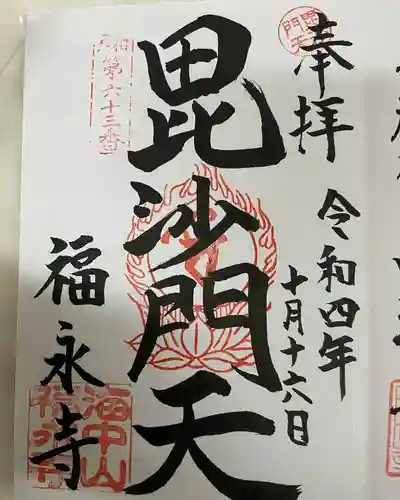 奉拝
毘沙門天
令和四年
十月十六日
毘沙門天
第六十三番
福永寺
海中山
福永寺